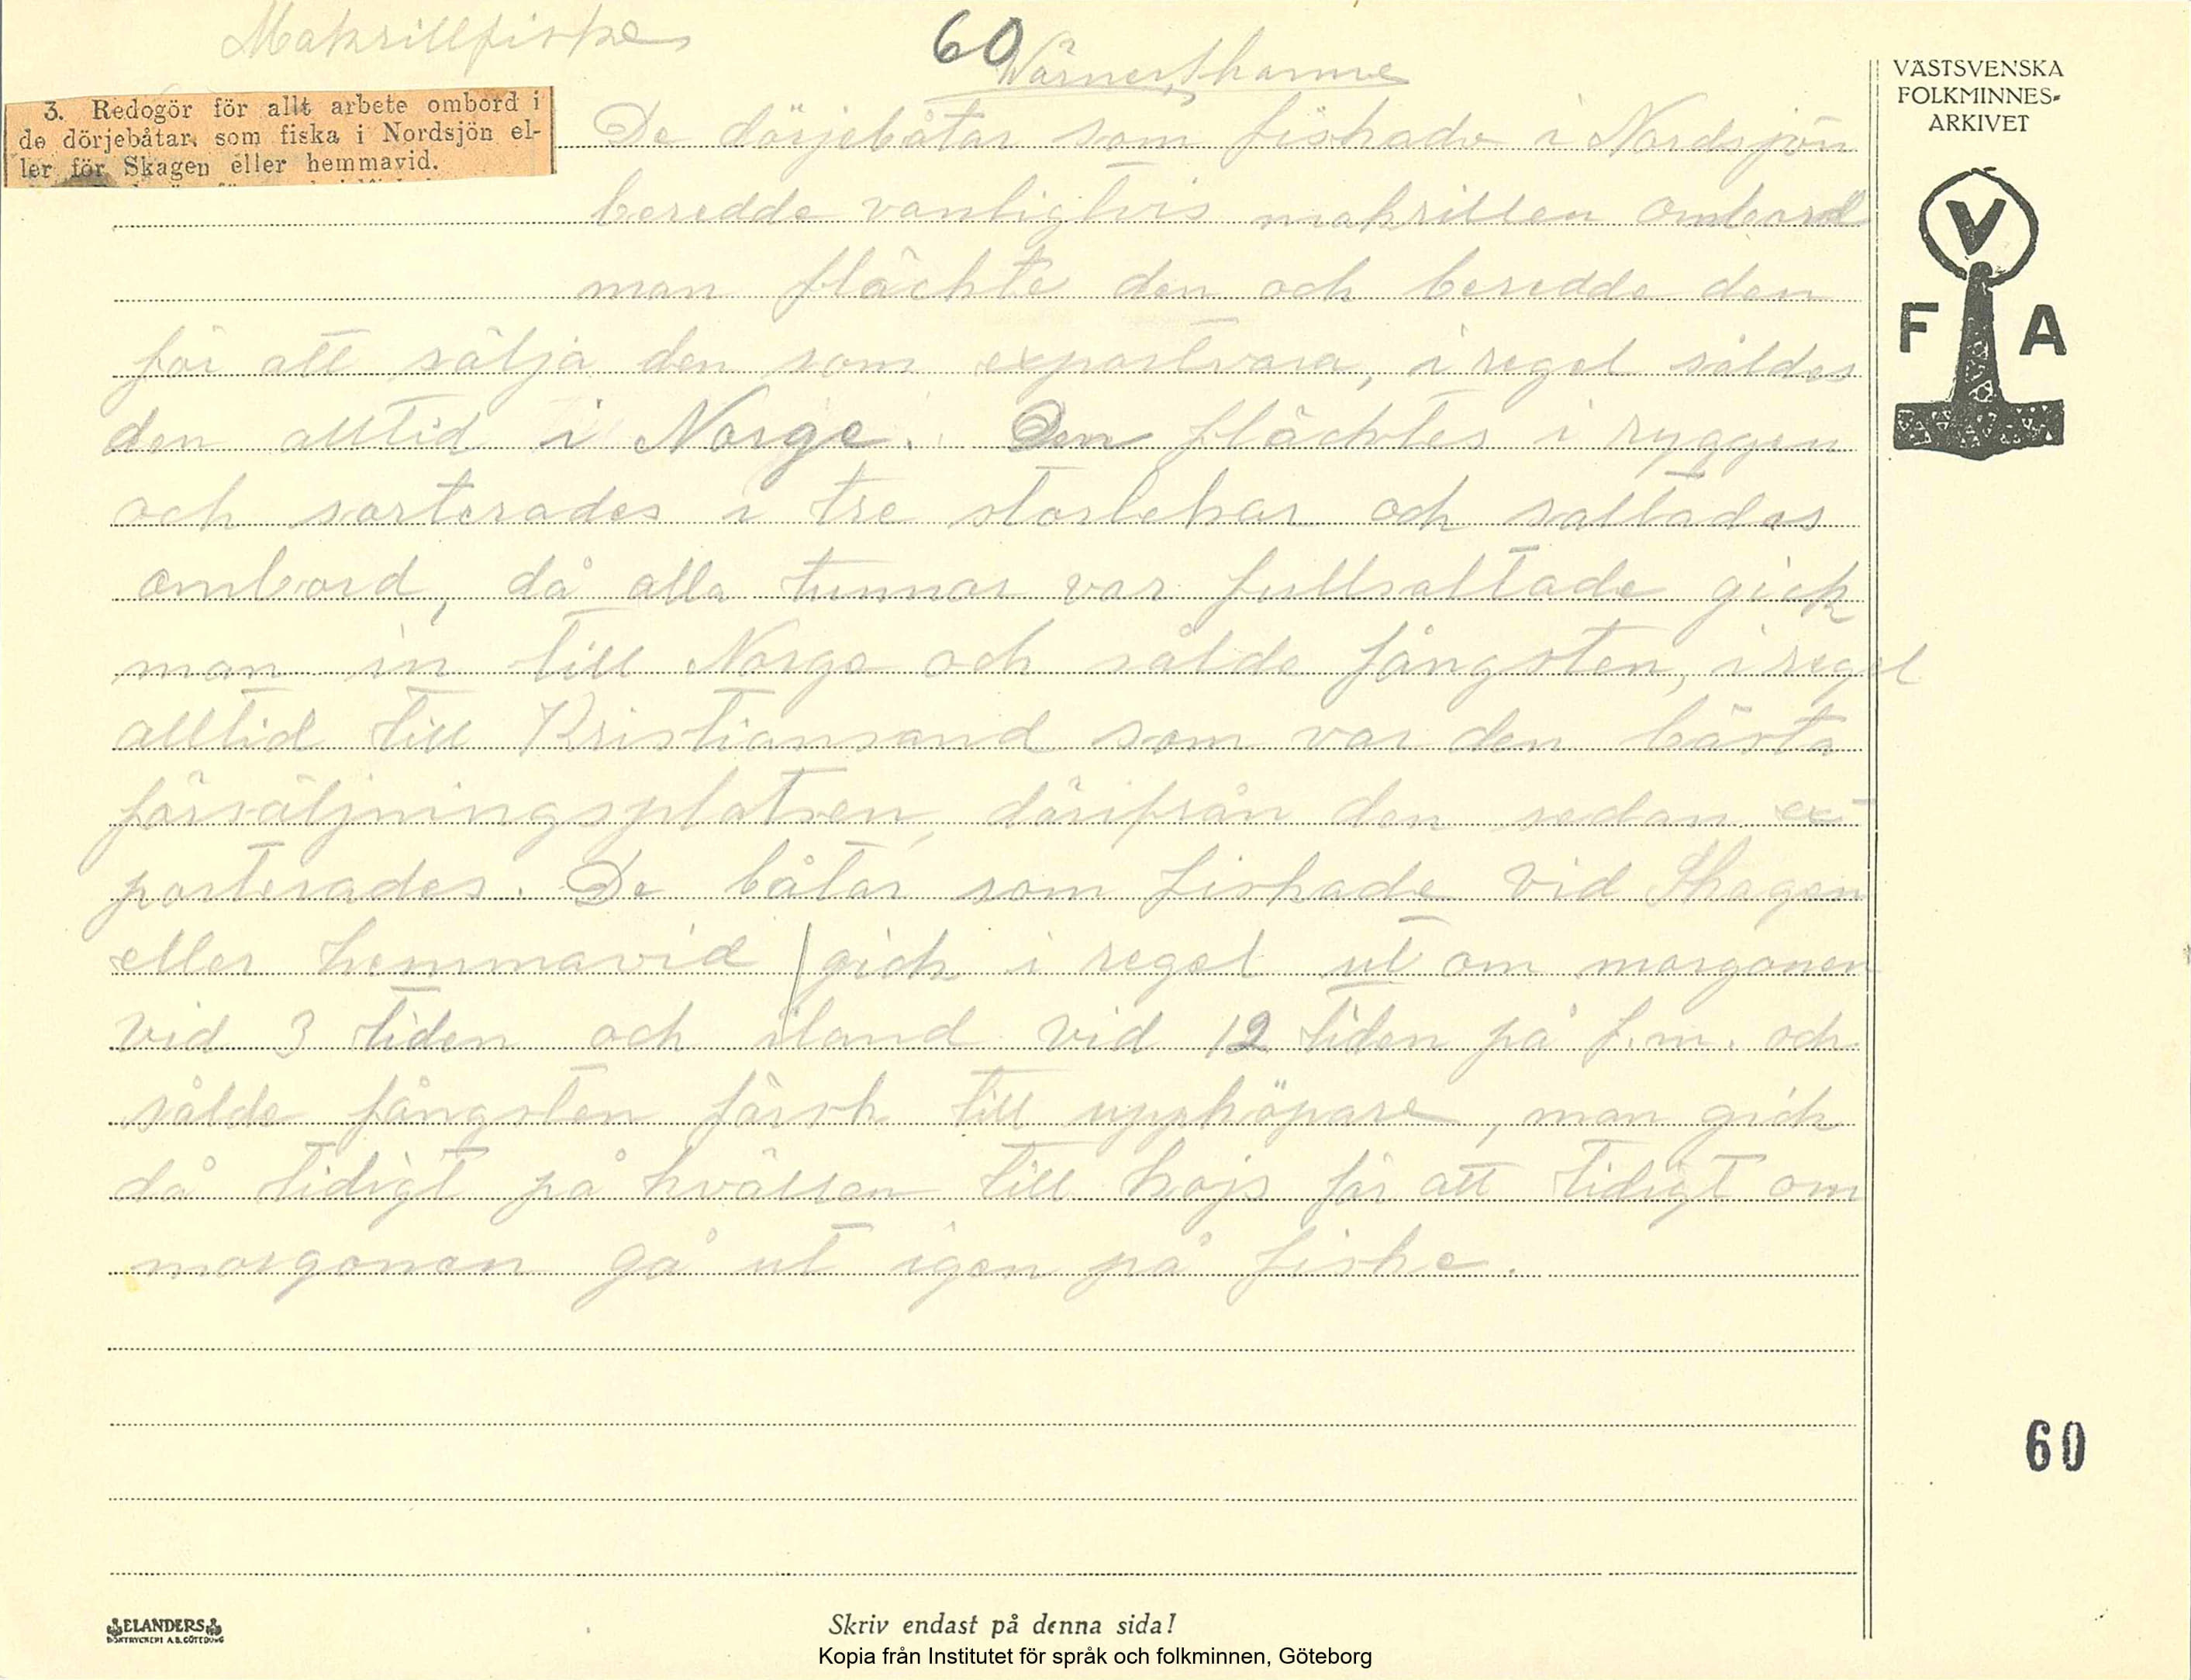 Makrillfiske
60
Wärner, Skarme
3. Redogör för allt arbete ombord i
de dörjebåtar, som fiska i Nordsjön el-
ler för Skagen eller hemmavid.
De dörjebåtar som fiskade i Nordsjön
beredde vanligtvis makrillen ombord
man fläckte den och beredde den
för att sälja den som exportvara, i regel såldes
den alltid i Norge. Den fläcktes i ryggen
och sorterades i tre storlekar och saltades
ombord, då alla tunnor var fullsaltade gick
man in till Norge och sålde fångsten, i regel
alltid till Kristiansand som var den bästa
försäljningsplatsen, därifrån den sedan ex-
porterades. De båtar som fiskade vid Skagen
eller hemmavid gick i regel ut om morgonen
vid 3 tiden och iland vid 12 tiden på f.m. och
sålde fångsten färsk till uppköpare, man gick
då tidigt på kvällen till kojs för att tidigt om
morgonen gå ut igen på fiske.
VÄSTSVENSKA
FOLKMINNES-
ARKIVET
V
F A
60
ELANDERS
BOKTRYCKERI A.B. GÖTEBORG
Skriv endast på denna sida!
Kopia från Institutet för språk och folkminnen, Göteborg